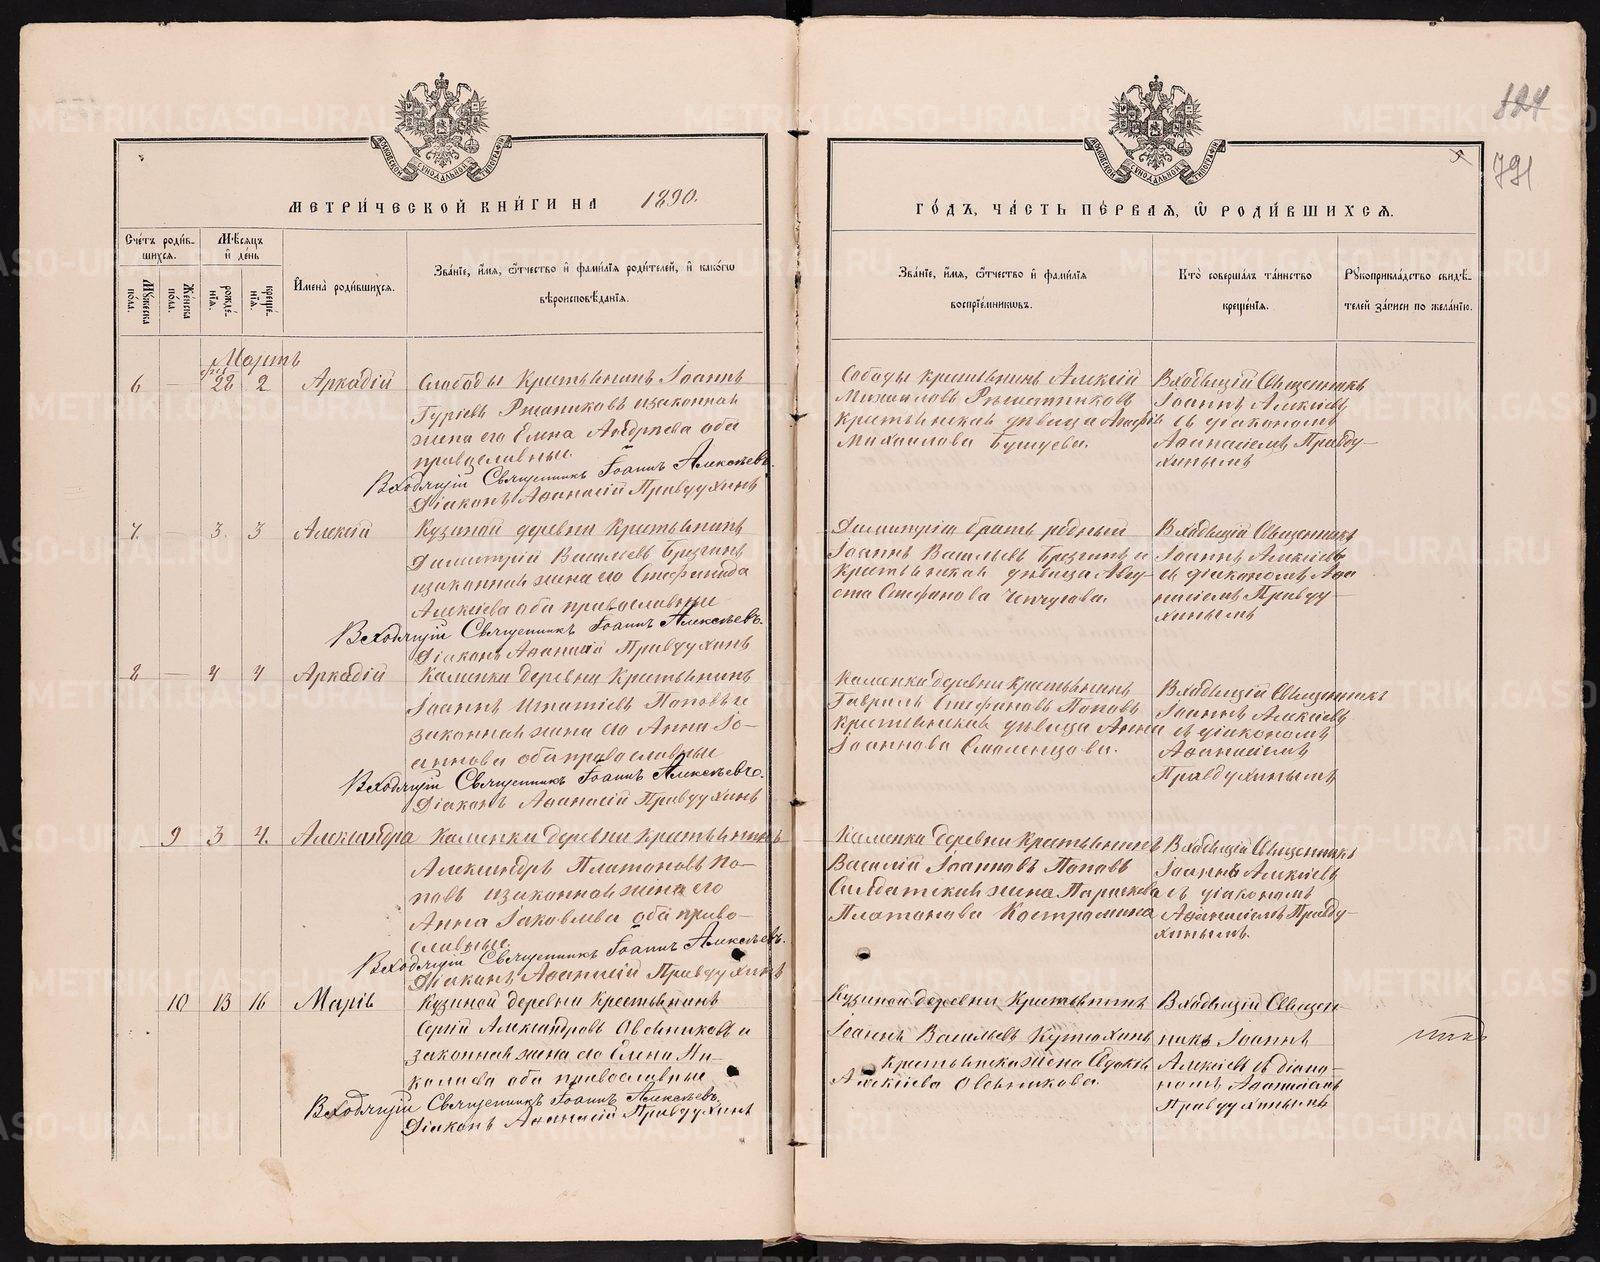 824
791
5
МЕТРИ́ЧЕСКОЙ КНИ́ГИ НА 1890.
ГО́ДЪ, ЧА́СТЬ ПЕ́РВАЯ, Ѿ РОДИ́ВШИХСЯ.
Сче́тъ роди́в-
шихся.
Мꙋжеска по́ла.
Же́нска по́ла.
Мѣ́сяцъ и́ де́нь
рожде́-
нїя.
креще́-
нїя.
Имена̀ роди́вшихся.
Зва́нїе, и́мя, ѻ́тчество и́ фами́лїя роди́телей, и́ како́гѡ
вѣроисповѣ́данїя.
Зва́нїе, и́мя, ѻ́тчество и́ фами́лїя
воспрїе́мникѡвъ.
Кто̀ соверша́лъ та́инство
креще́нїя.
Рꙋкоприкла́дство свидѣ́-
телей за́писи по жела́нїю.
Мартъ
6 — 28 2 Аркадій
Слободы Крестьянинъ Іоаннъ
Гуріевъ Ржаниковъ изаконная
жена его Елена Андреева оба
православные.
Входящій Священникъ Іоаннъ Алексѣевъ.
Діаконъ Аѳанасій Правдухинъ
Слободы крестьянинъ Алексій
Михаиловъ Рѣшетниковъ
крестьянская дѣвица
Михаилова Бушуева.
Входящій Священникъ
Іоаннъ Алексіевъ
съ діакономъ
Аѳанасіемъ Правду-
хинымъ
7. — 3. 3 Алексій
Кузиной деревни Крестьянинъ
Димитрій Васильевъ Брезгинъ
изаконная жена его Стефанида
Алексіева оба православные
Входящій Священникъ Іоаннъ Алексѣевъ.
Діаконъ Аѳанасій Правдухинъ
Димитрія братъ родный
Іоаннъ Васильевъ Брезгинъ и
крестьянская дѣвица Авгу-
ста Стефанова Чепчугова.
Входящій Священникъ
Іоаннъ Алексіевъ
съ діакономъ Аѳа
насіемъ Правду-
хинымъ
8 — 4 4 Аркадій
Каменки деревни Крестьянинъ
Іоаннъ Игнатіевъ Поповъ и
законная жена его Анна Іо-
аннова оба православные
Входящій Священникъ Іоаннъ Алексѣевъ.
Діаконъ Аѳанасій Правдухинъ
Каменки деревни Крестьянинъ
Гавріилъ Стефановъ Поповъ
крестьянская дѣвица Анна
Іоаннова Смоленцова.
Входящій Священникъ
Іоаннъ Алексіевъ
съ діакономъ
Аѳанасіемъ
Правдухинымъ
9 3 4. Александра
Каменки деревни крестьянинъ
Александръ Платоновъ По-
повъ изаконная жена его
Анна Іаковлева оба право-
славные.
Входящій Священникъ Іоаннъ Алексѣевъ.
Діаконъ Аѳанасій Правдухинъ
Каменки деревни крестьянинъ
Василій Іоанновъ Поповъ
Солдатская жена Параскева
Платонова Костромина
Входящій Священникъ
Іоаннъ Алексіевъ
съ діакономъ
Аѳанасіемъ Правду-
хинымъ.
10 13 16 Марія
Кузиной деревни Крестьянинъ
Сергій Александровъ Овсянниковъ и
законная жена его Елена Ни-
колаева оба православные
Входящій Священникъ Іоаннъ Алексѣевъ.
Діаконъ Аѳанасій Правдухинъ
Кузиной деревни Крестьянинъ
Іоаннъ Васильевъ
крестьянска жена Евдокія
Алексіева Овсянникова.
Входящій Священ-
никъ Іоаннъ
Алексіевъ съ діако-
номъ Аѳанасіемъ
Правдухинымъ
METRIKI.GASO-URAL.RU